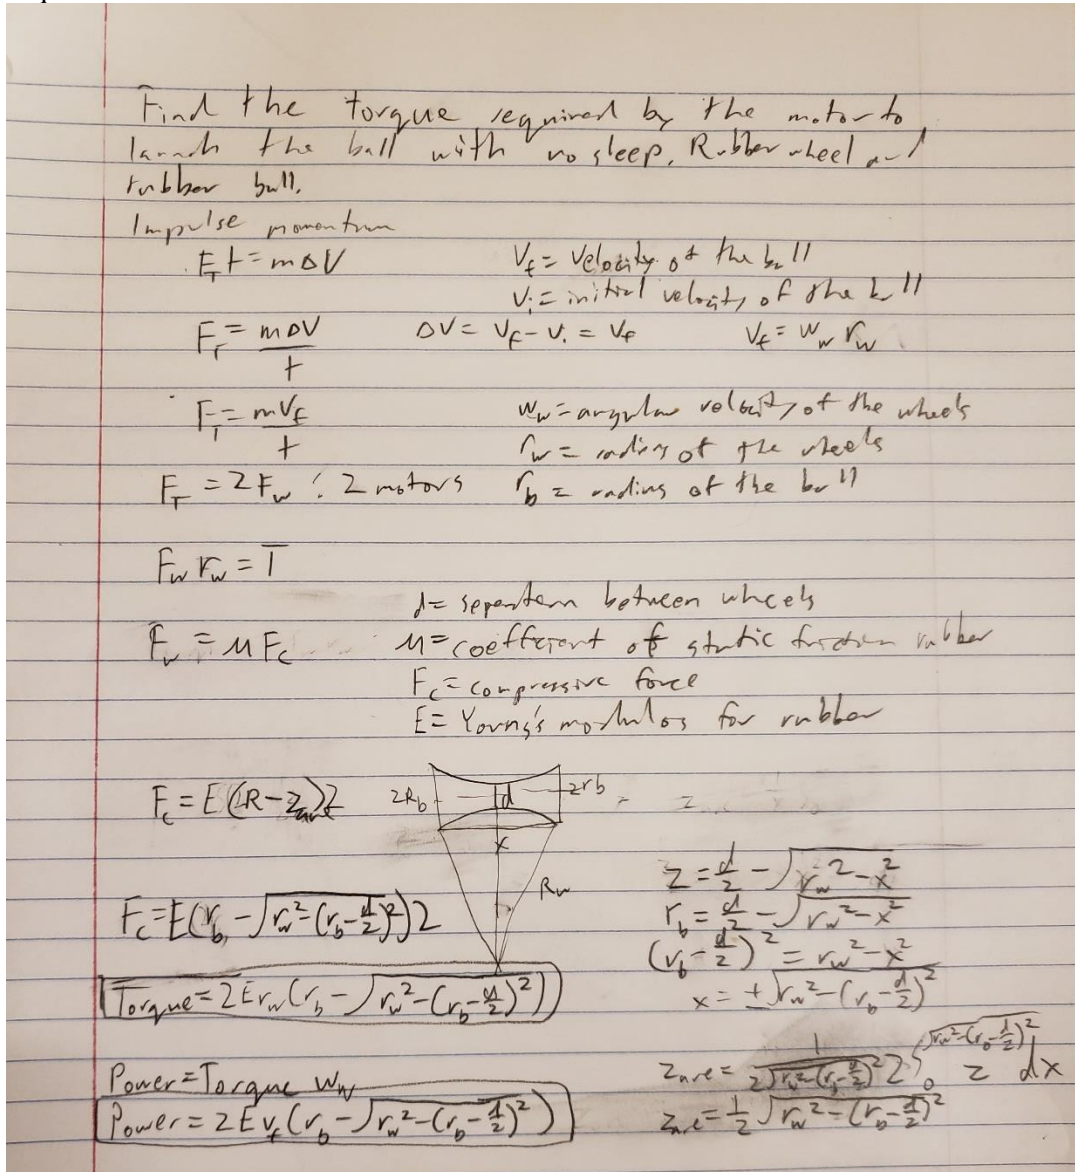 Find the torque required by the motor to
launch the ball with no sleep. Rubber wheel and
rubber ball.
Impulse momentum
F_T t = mΔV    V_f = Velocity of the ball
V_i = initial velocity of the ball
F_T = mΔV/t    ΔV = V_f - V_i = V_f    V_f = w_w r_w
F_T = mV_f/t    w_w = angular velocity of the wheels
r_w = radius of the wheels
F_T = 2F_w ∵ 2 motors    r_b = radius of the ball
F_w r_w = T
d = seperation between wheels
F_w = μF_c    μ = coefficient of static friction rubber
F_c = compressive force
E = Young's modulos for rubber
F_c = E(2R - z_ave)2    2R_b    d    2r_b
x
R_w    z = d/2 - √(r_w² - x²)
F_c = E(r_b - √(r_w² - (r_b - d/2)²))2    r_b = d/2 - √(r_w² - x²)
(r_b - d/2)² = r_w² - x²
Torque = 2Er_w(r_b - √(r_w² - (r_b - d/2)²))    x = ±√(r_w² - (r_b - d/2)²)
Power = Torque w_w    z_ave = 1/(2√(r_w² - (r_b - d/2)²)) 2∫_0^√(r_w² - (r_b - d/2)²) z dx
Power = 2Ev_f(r_b - √(r_w² - (r_b - d/2)²))    z_ave = 1/2 √(r_w² - (r_b - d/2)²)